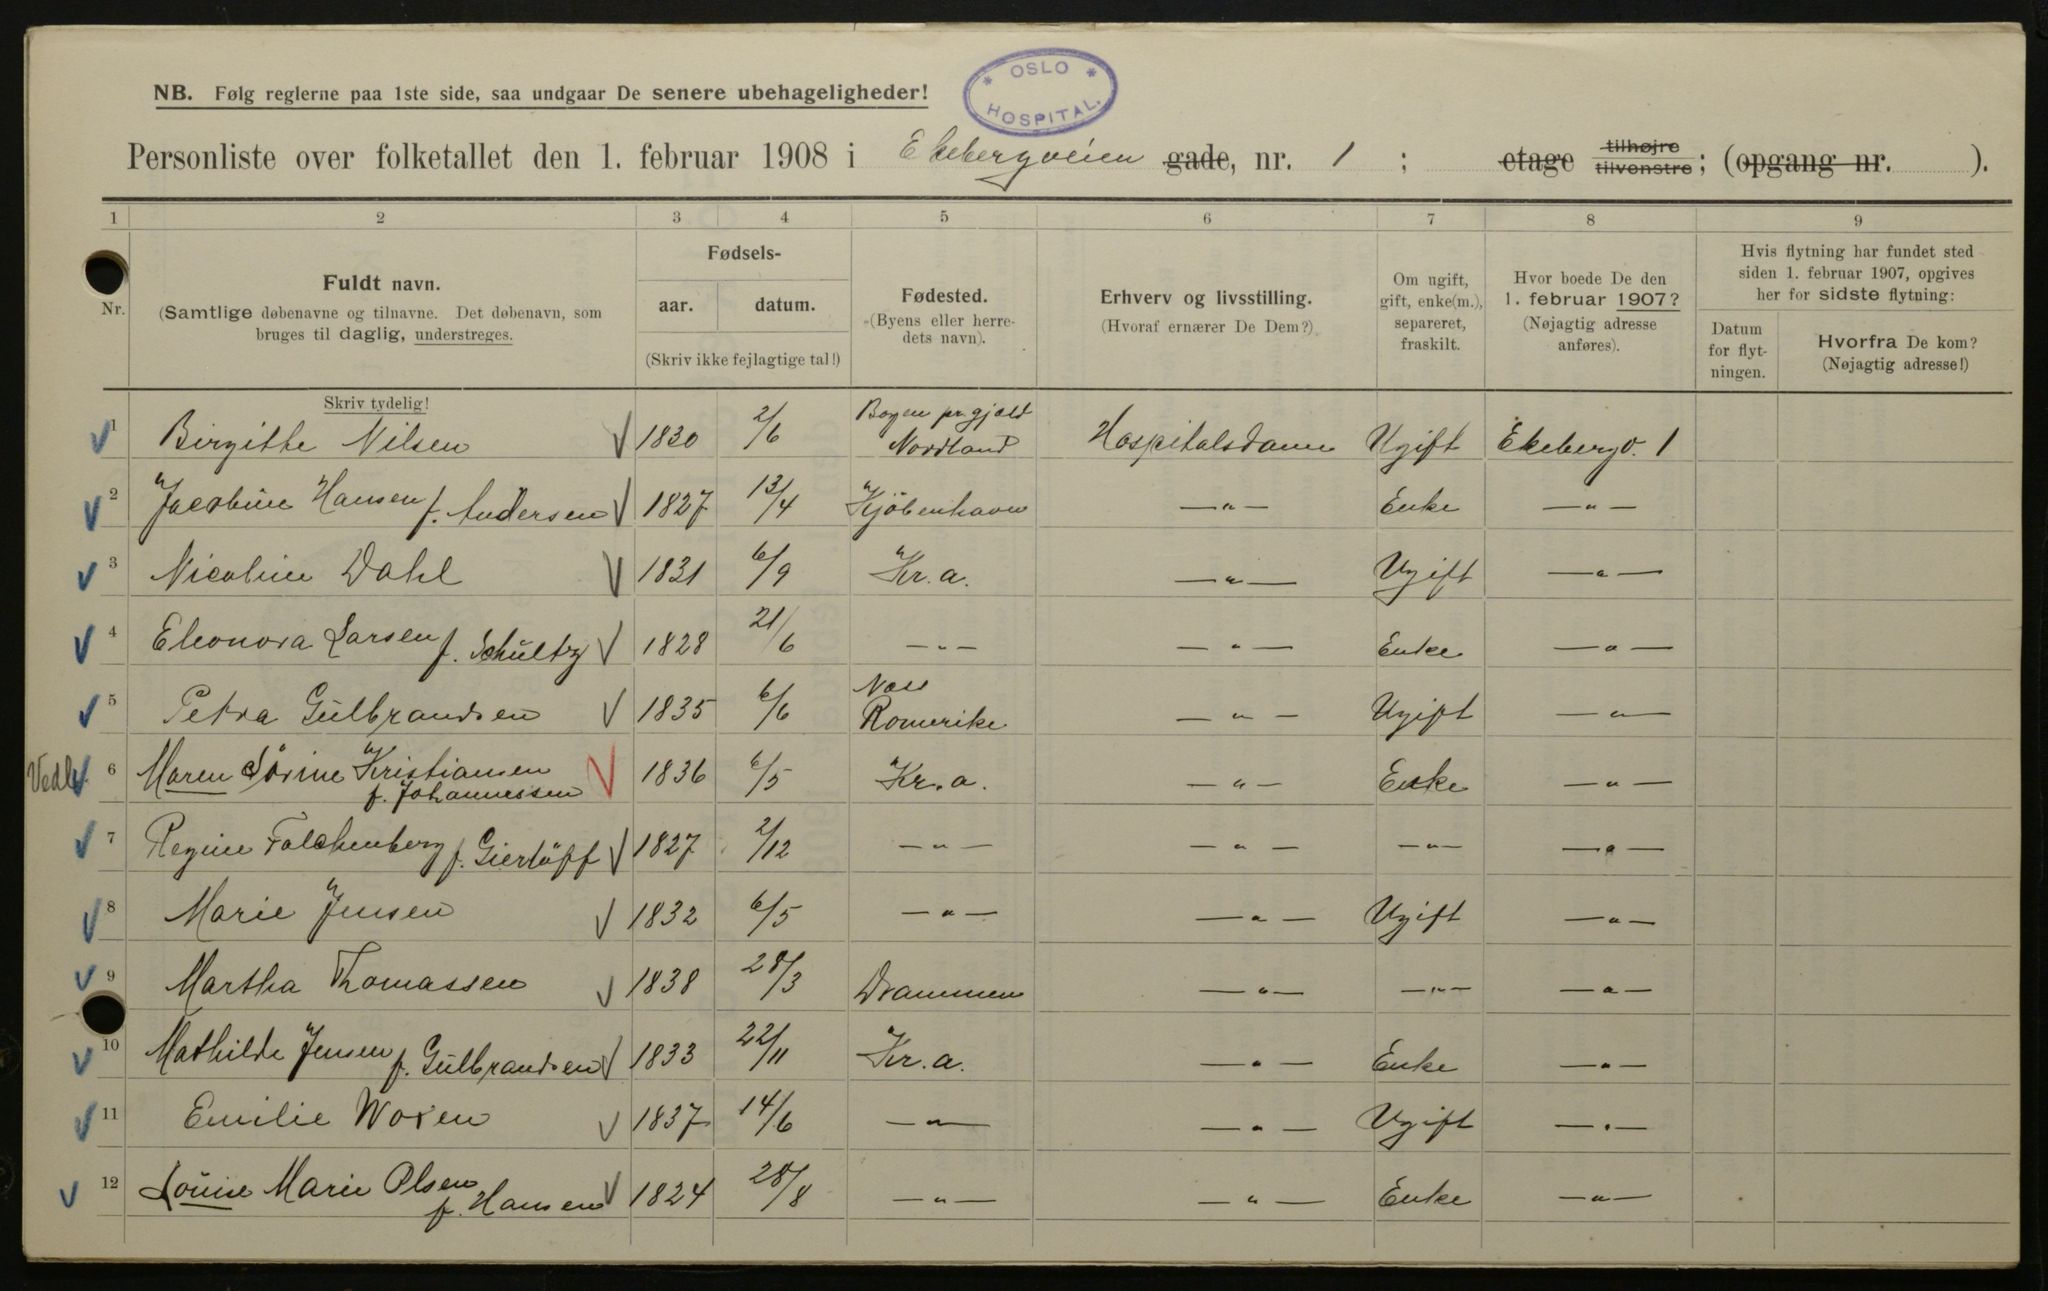 OSLO
HOSPITAL.
NB. Følg reglerne paa 1ste side, saa undgaar De senere ubehageligheder!
Personliste over folketallet den 1. februar 1908 i Ekebergveien gade, nr. 1 ; etage tilhøjre tilvenstre; (opgang nr. ).
1 2 3 4 5 6 7 8 9
Nr.
Fuldt navn.
(Samtlige døbenavne og tilnavne. Det døbenavn, som
bruges til daglig, understreges.
Skriv tydelig!
Fødsels-
aar. datum.
(Skriv ikke fejlagtige tal!)
Fødested.
(Byens eller herre-
dets navn).
Erhverv og livsstilling.
(Hvoraf ernærer De Dem?)
Om ugift,
gift, enke(m.),
separeret,
fraskilt.
Hvor boede De den
1. februar 1907?
(Nøjagtig adresse
anføres).
Hvis flytning har fundet sted
siden 1. februar 1907, opgives
her for sidste flytning:
Datum
for flyt-
ningen.
Hvorfra De kom?
(Nøjagtig adresse!)
1 Birgitte Nilsen 1830 2/6 Bogen pr.gjæld Nordland Hospitalsdame Ugift Ekebergv. 1
2 Jacobine Hansen f. Andersen 1827 13/4 Kjöbenhavn —"— Enke —"—
3 Nicoline Dahl 1831 6/9 Kr.a. —"— Ugift —"—
4 Eleonora Larsen f. Schultz 1828 21/6 —"— —"— Enke —"—
5 Petra Gulbrandsen 1835 6/6 Næs Romerike —"— Ugift —"—
Vedl. 6 Maren Sörine Kristiansen f. Johannessen 1836 6/5 Kr.a. —"— Enke —"—
7 Regine Falckenberg f. Giertöff 1827 2/12 —"— —"— —"— —"—
8 Marie Jensen 1832 6/5 —"— —"— Ugift —"—
9 Martha Thomassen 1838 28/3 Drammen —"— —"— —"—
10 Mathilde Jensen f. Gulbrandsen 1833 22/11 Kr.a. —"— Enke —"—
11 Emilie Woxen 1837 14/6 —"— —"— Ugift —"—
12 Louise Marie Olsen f. Hansen 1824 28/8 —"— —"— Enke —"—